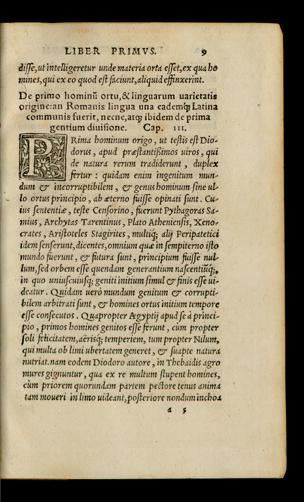 LIBER PRIMVS. 9
disse, ut intelligeretur unde materia orta esset, ex qua ho
mines, qui ex eo quod est faciunt, aliquid effinxerint.
De primo hominũ ortu, & linguarum uarietatis
origine: an Romanis lingua una eademq́; Latina
communis fuerit, necne, atq; ibidem de prima
gentium diuisione. Cap. III.
PRima hominum origo, ut testis est Dio-
dorus, apud præstantissimos uiros, qui
de natura rerum tradiderunt, duplex
fertur: quidam enim ingenitum mun-
dum & incorruptibilem, & genus hominum sine ul-
lo ortus principio, ab æterno fuisse opinati sunt. Cu-
ius sententiæ, teste Censorino, fuerunt Pythagoras Sa-
mius, Archytas Tarentinus, Plato Atheniensis, Xeno-
crates, Aristoteles Stagirites, multiq́; alij Peripatetici
idem senserunt, dicentes, omnium quæ in sempiterno isto
mundo fuerunt, & futura sunt, principium fuisse nul-
lum, sed orbem esse quendam generantium nascentiũq́;,
in quo uniuscuiusq; geniti initium simul & finis esse ui-
deatur. Quidam uerò mundum genitum & corrupti-
bilem arbitrati sunt, & homines ortus initium tempore
esse consecutos. Quapropter Aegyptij apud se à princi-
pio, primos homines genitos esse ferunt, cùm propter
soli felicitatem, aërisq́; temperiem, tum propter Nilum,
qui multa ob limi ubertatem generet, & suapte natura
nutriat. nam eodem Diodoro autore, in Thebaidis agro
mures gignuntur, qua ex re multum stupent homines,
cùm priorem quorundam partem pectore tenus anima
tam moueri in limo uideant, posteriore nondum inchoa
a 5